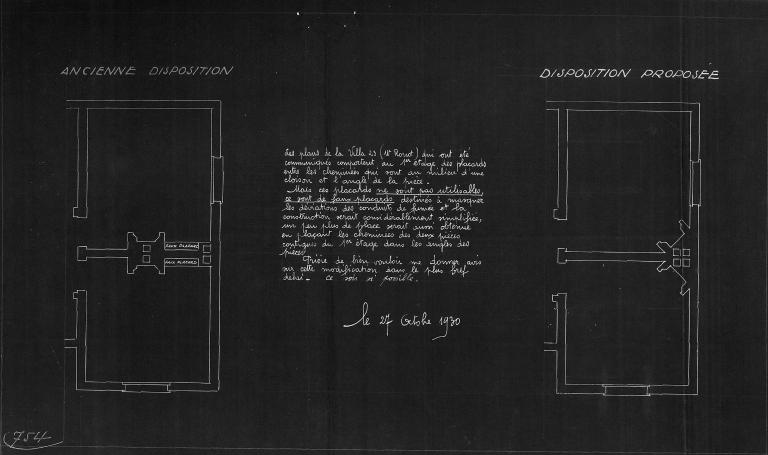 ANCIENNE DISPOSITION
DISPOSITION PROPOSÉE
Les plans de la Villa 23 (Mr) qui ont été
communiqués comportent au 1er étage des placards
entre les cheminées qui sont au milieu d'une
cloison et l'angle de la pièce.
Mais ces placards ne sont pas utilisables,
ce sont de faux placards destinés à masquer
les déviations des conduits de fumée et la
construction serait considérablement simplifiée,
un peu plus de place serait aussi obtenue
en plaçant les cheminées des deux pièces
contigues du 1er étage dans les angles des
pièces
Prière de bien vouloir me donner avis
sur cette modification dans le plus bref
délai. - ce soir si possible.
le 27 Octobre 1930
FAUX PLACARD
FAUX PLACARD
754